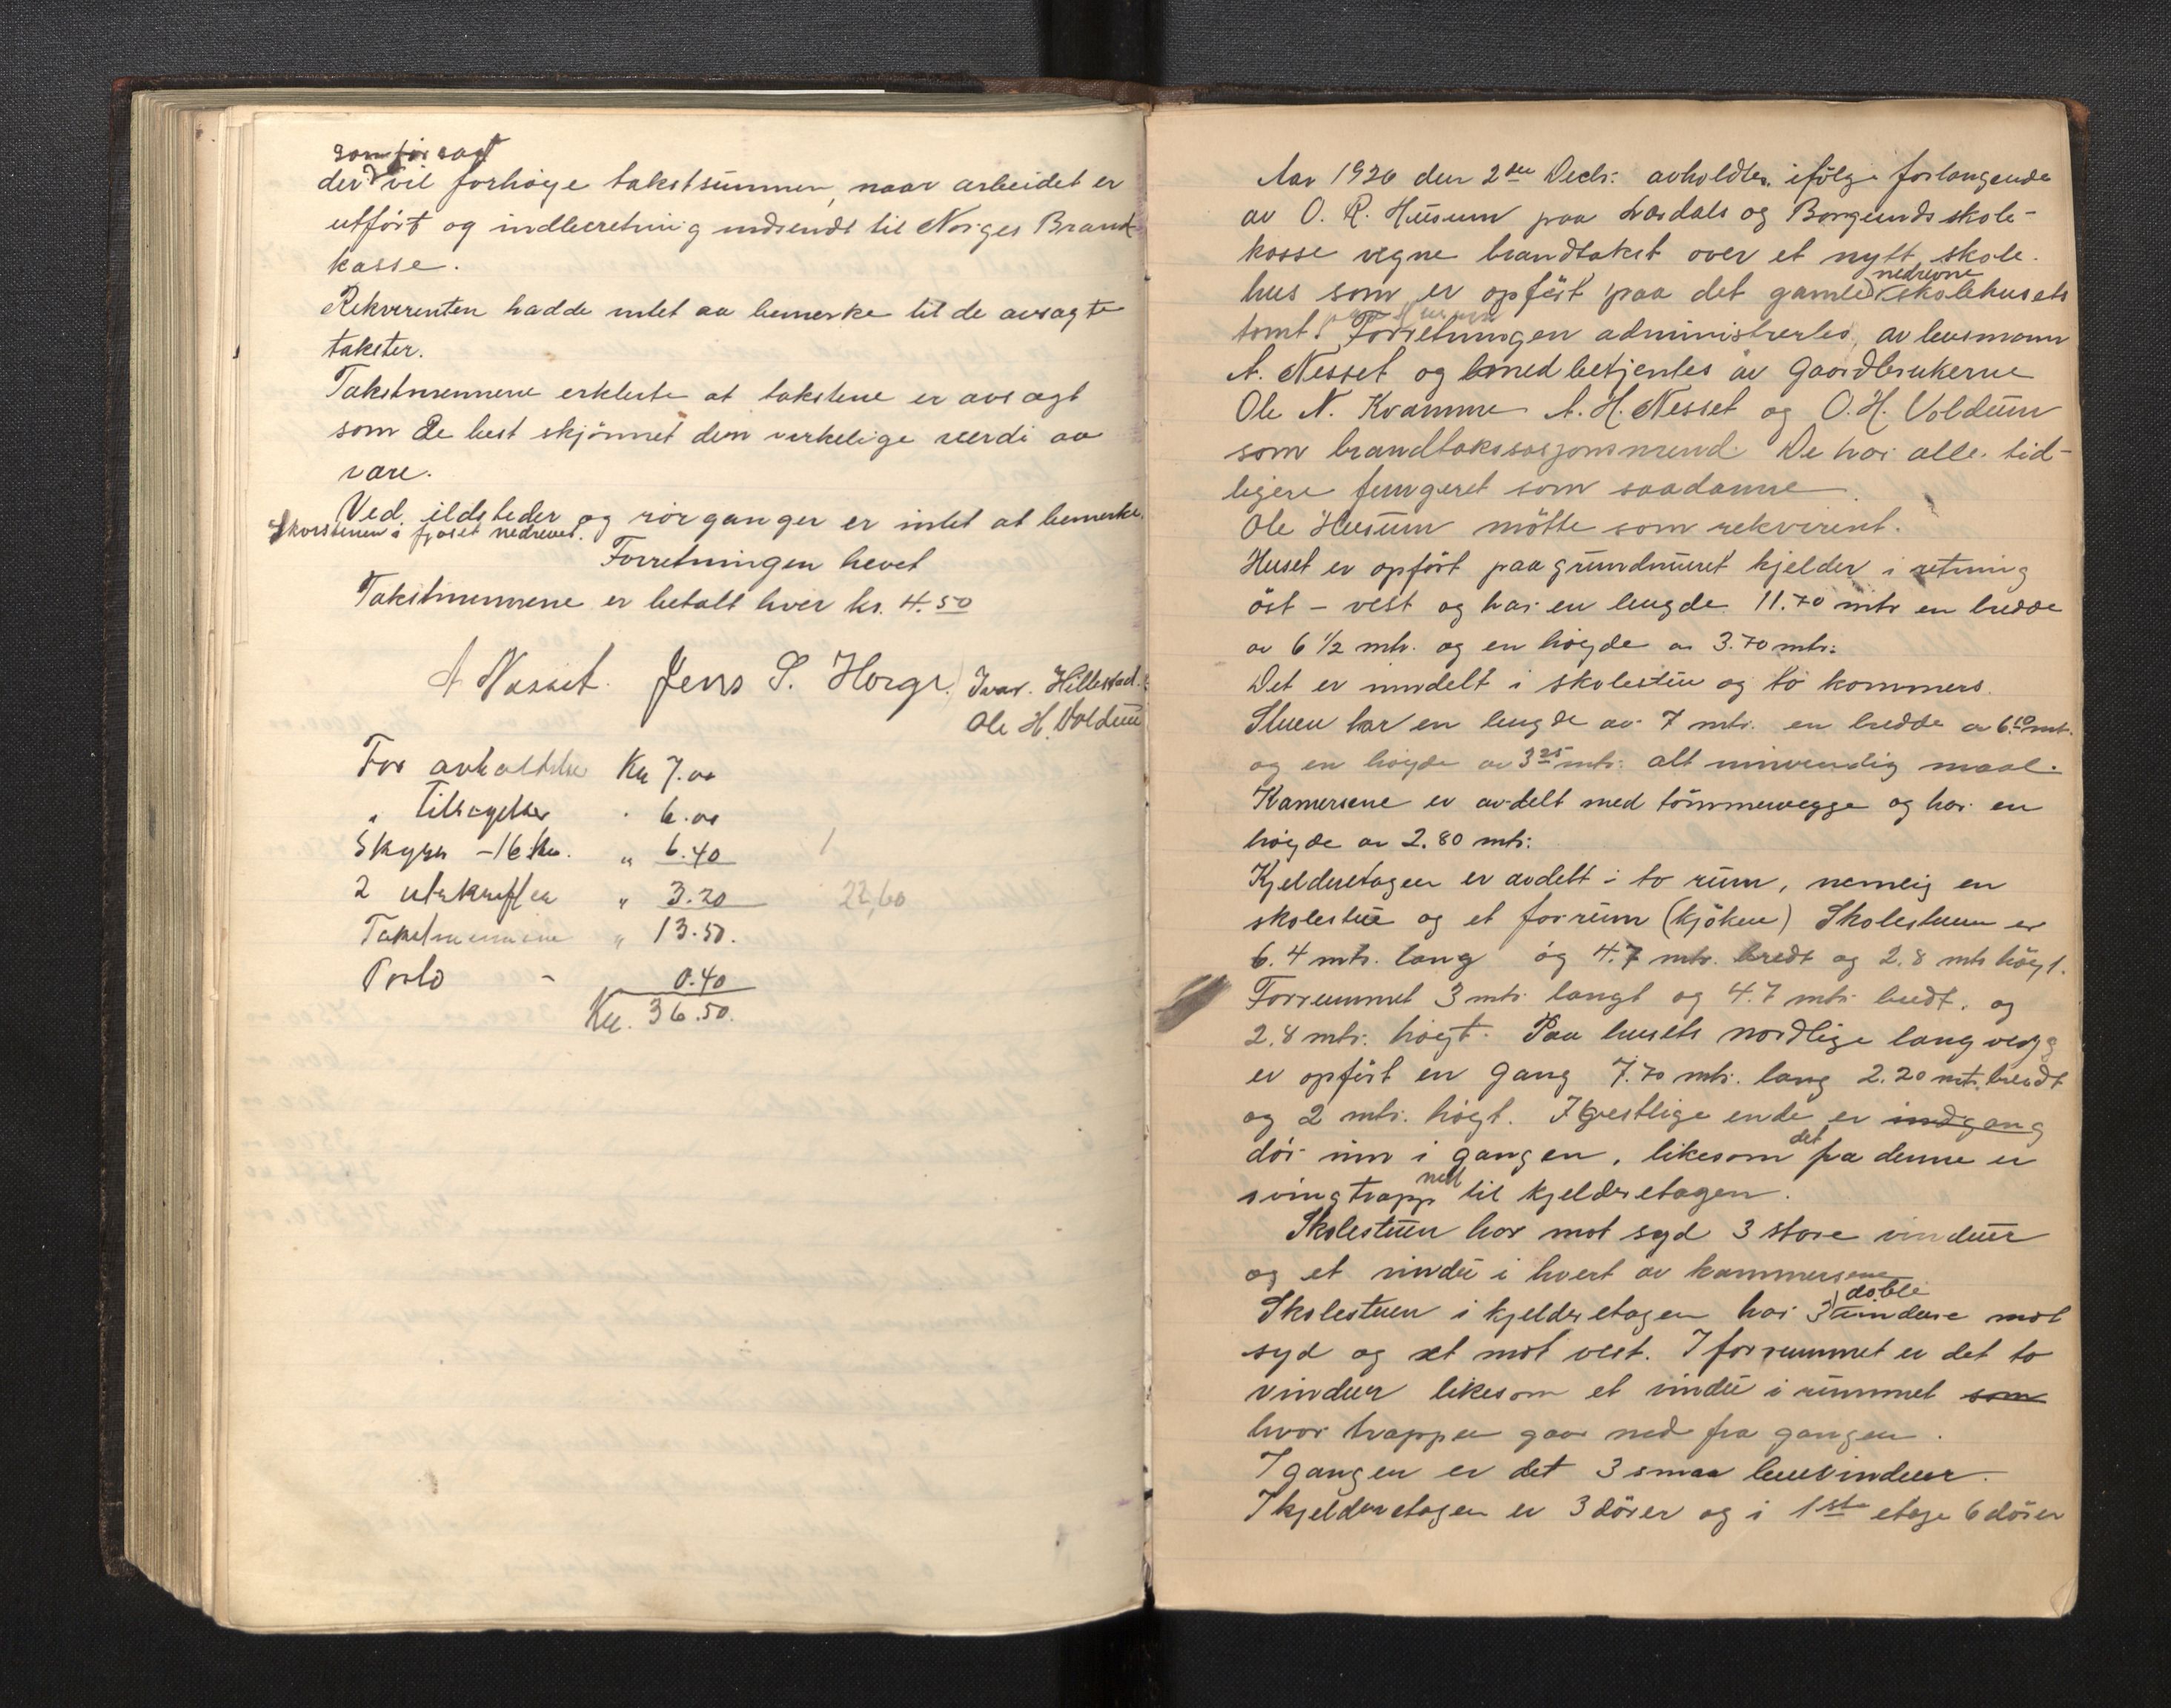 som før sagt
der vil forhøye takstsummen, naar arbeidet er
utført og indberetning indsendt til Norges Brand-
kasse.
Rekvirenten hadde intet aa bemerke til de avsagte
takster.
Takstmennene erklerte at takstene er avsagt
som de best skjønnet den virkelige verdi aa
være.
Ved ildsteder og rørganger er intet at bemerke.
Skorstenen i fjøset nedrevet.
Forretningen hevet
Takstmennene er betalt hver kr. 4.50
A Nesset. Jens S. Horge. Ivar. Hillestad.
Ole H. Voldum
For avholdelse Kr 7.00
" Tilsigelser " 6.00
Skyss - 16 km. " 6.40
2 utskrifter " 3.20 22,60
Takstmennene " 13.50.
Porto - 0.40
Kr. 36.50.
Aar 1920 den 2den Decbr. avholdtes ifølge forlangende
av O. R. Husum paa Lærdals og Borgunds skole-
kasse vegne brandtakst over et nytt skole-
hus som er opført paa det gamle nedrevne skolehusets
tomt. Forretningen administrertes av lensmann
A. Nesset og medbetjentes av Gaardbrukerne
Ole N. Kvamme A. H. Nesset og O. H. Voldum
som brandtaksasjonsmend. De har alle tid-
ligere fungeret som saadanne.
Ole Husum møtte som rekvirent.
Huset er opført paa grundmuret kjelder i retning
øst - vest og har en lengde 11.70 mtr en bredde
av 6 1/2 mtr. og en høyde av 3.70 mtr.
Det er inndelt i skolestue og to kammers.
Stuen har en lengde av 7 mtr. en bredde av 6.10 mtr.
og en høyde av 3 25 mtr. alt innvendig maal.
Kamersene er avdelt med tømmervegge og har en
høyde av 2.80 mtr.
Kjelderetagen er avdelt i to rum, nemlig en
skolestue og et forrum (kjøken) Skolestuen er
6.4 mtr. lang og 4.7 mtr. bredt og 2.8 mtr høyt.
Forrummet 3 mtr langt og 4.7 mtr bredt. og
2.8 mtr. høyt. Paa husets nordlige langvegg
er opført en Gang 7.70 mtr. lang 2.20 mtr. bredt
og 2 mtr. høgt. I vestlige ende er indgang
dør inn i gangen, likesom det fra denne er
svingtrapp ned til kjelderetagen.
Skolestuen har mot syd 3 store vinduer
og et vindu i hvert av kammersene
Skolestuen i kjelderetagen har 3 doble vinduer mot
syd og et mot vest. I forrummet er det to
vinduer likesom et vindu i rummet som
hvor trappen gaar ned fra gangen.
I gangen er det 3 smaa buevinduer.
I kjelderetagen er 3 dører og i 1ste etage 6 dører